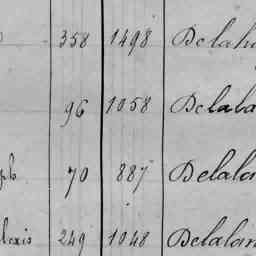 358 1498 Delah
96 1058 Delala
ph 70 887 Delalan
lexis 249 1048 Delalan